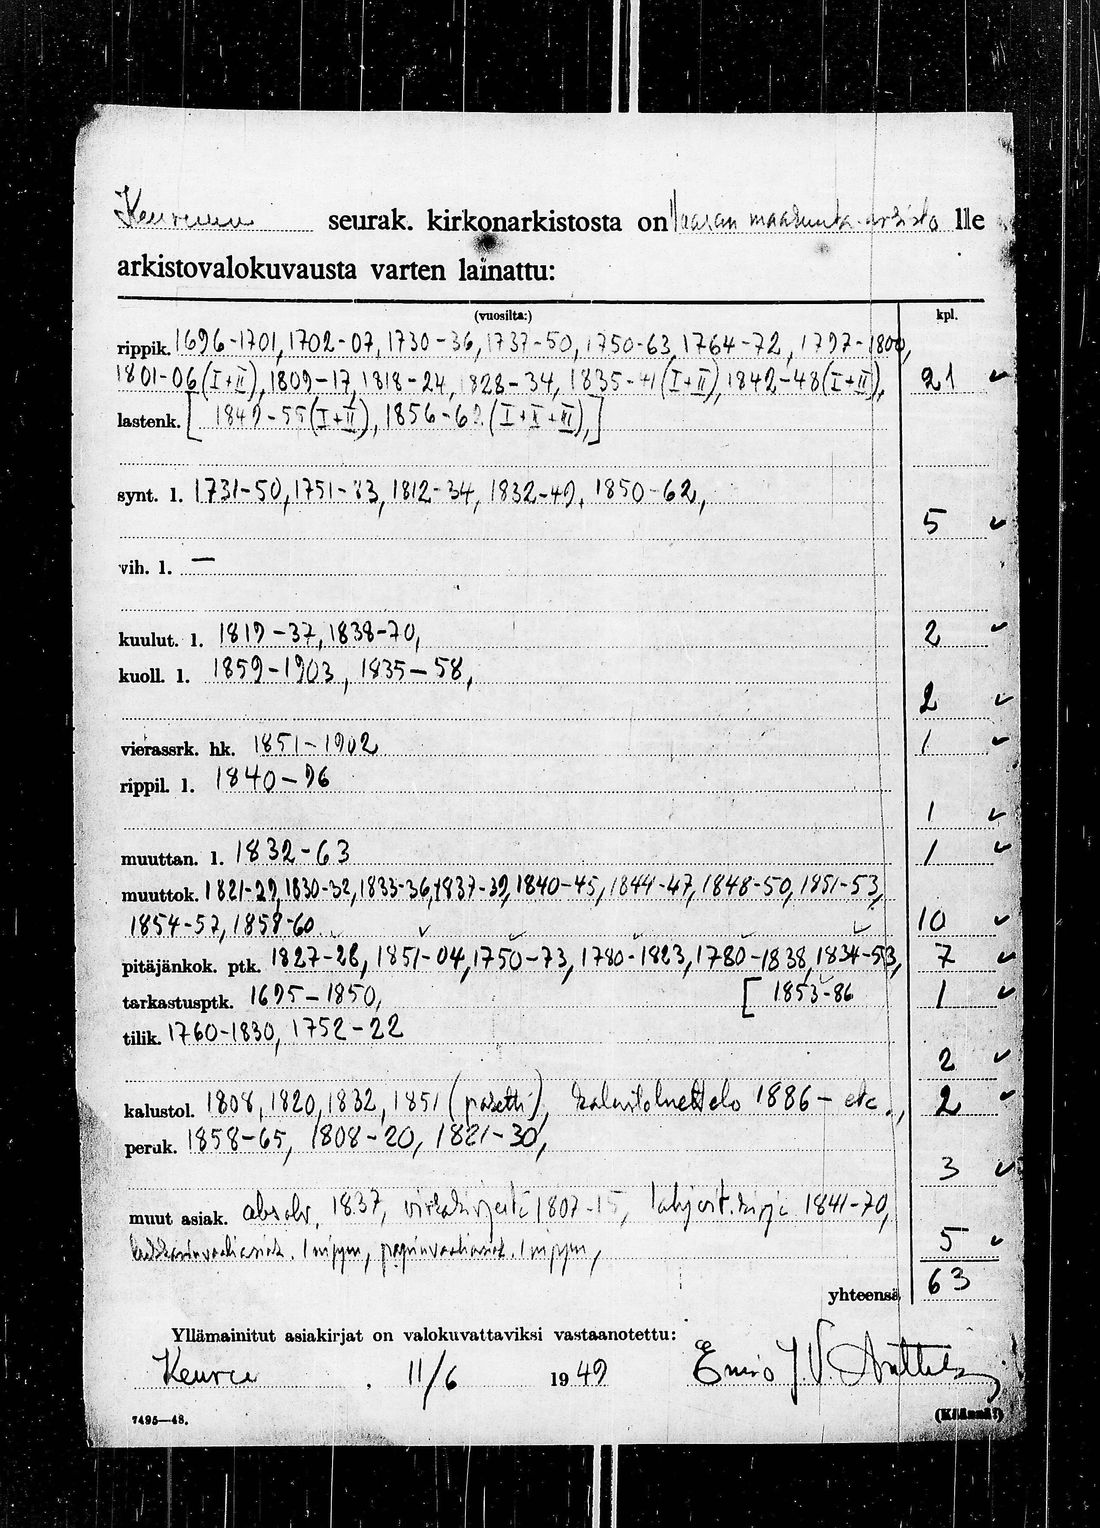 Keuruun seurak. kirkonarkistosta on Vaasan maakunta-arkisto lle
arkistovalokuvausta varten lainattu:
(vuosilta:) kpl.
rippik. 1696-1701, 1702-07, 1730-36, 1737-50, 1750-63, 1764-72, 1797-1800,
1801-06 (I+II), 1809-17, 1818-24, 1828-34, 1835-41 (I+II), 1842-48 (I+II), 21 ✓
lastenk. [1849-55 (I+II), 1856-62 (I+II+III),]
synt. l. 1731-50, 1751-83, 1812-34, 1832-49, 1850-62,
5 ✓
vih. l. —
kuulut. l. 1819-37, 1838-70, 2 ✓
kuoll. l. 1859-1903, 1835-58,
2 ✓
vierassrk. hk. 1851-1902 1 ✓
rippil. l. 1840-96
1 ✓
muuttan. l. 1832-63 1 ✓
muuttok. 1821-29, 1830-32, 1833-36, 1837-39, 1840-45, 1844-47, 1848-50, 1851-53,
1854-57, 1858-60 10 ✓
pitäjänkok. ptk. 1827-28, 1851-04, 1750-73, 1780-1823, 1780-1838, 1834-53, 7 ✓
tarkastusptk. 1695-1850, [1853-86 1 ✓
tilik. 1760-1830, 1752-22
2 ✓
kalustol. 1808, 1820, 1832, 1851 ( ), kalustoluettelo 1886- etc., 2 ✓
peruk. 1858-65, 1808-20, 1821-30,
3 ✓
muut asiak. absolv. 1837, virkakirjeitä 1807-15, lahjoit.kirja 1841-70,
1 nippu, 1 nippu, 5 ✓
yhteensä 63
Yllämainitut asiakirjat on valokuvattaviksi vastaanotettu:
Keuruu . 11/6 1949 Eino J. V. Anttila
7495—48. (Käännä!)